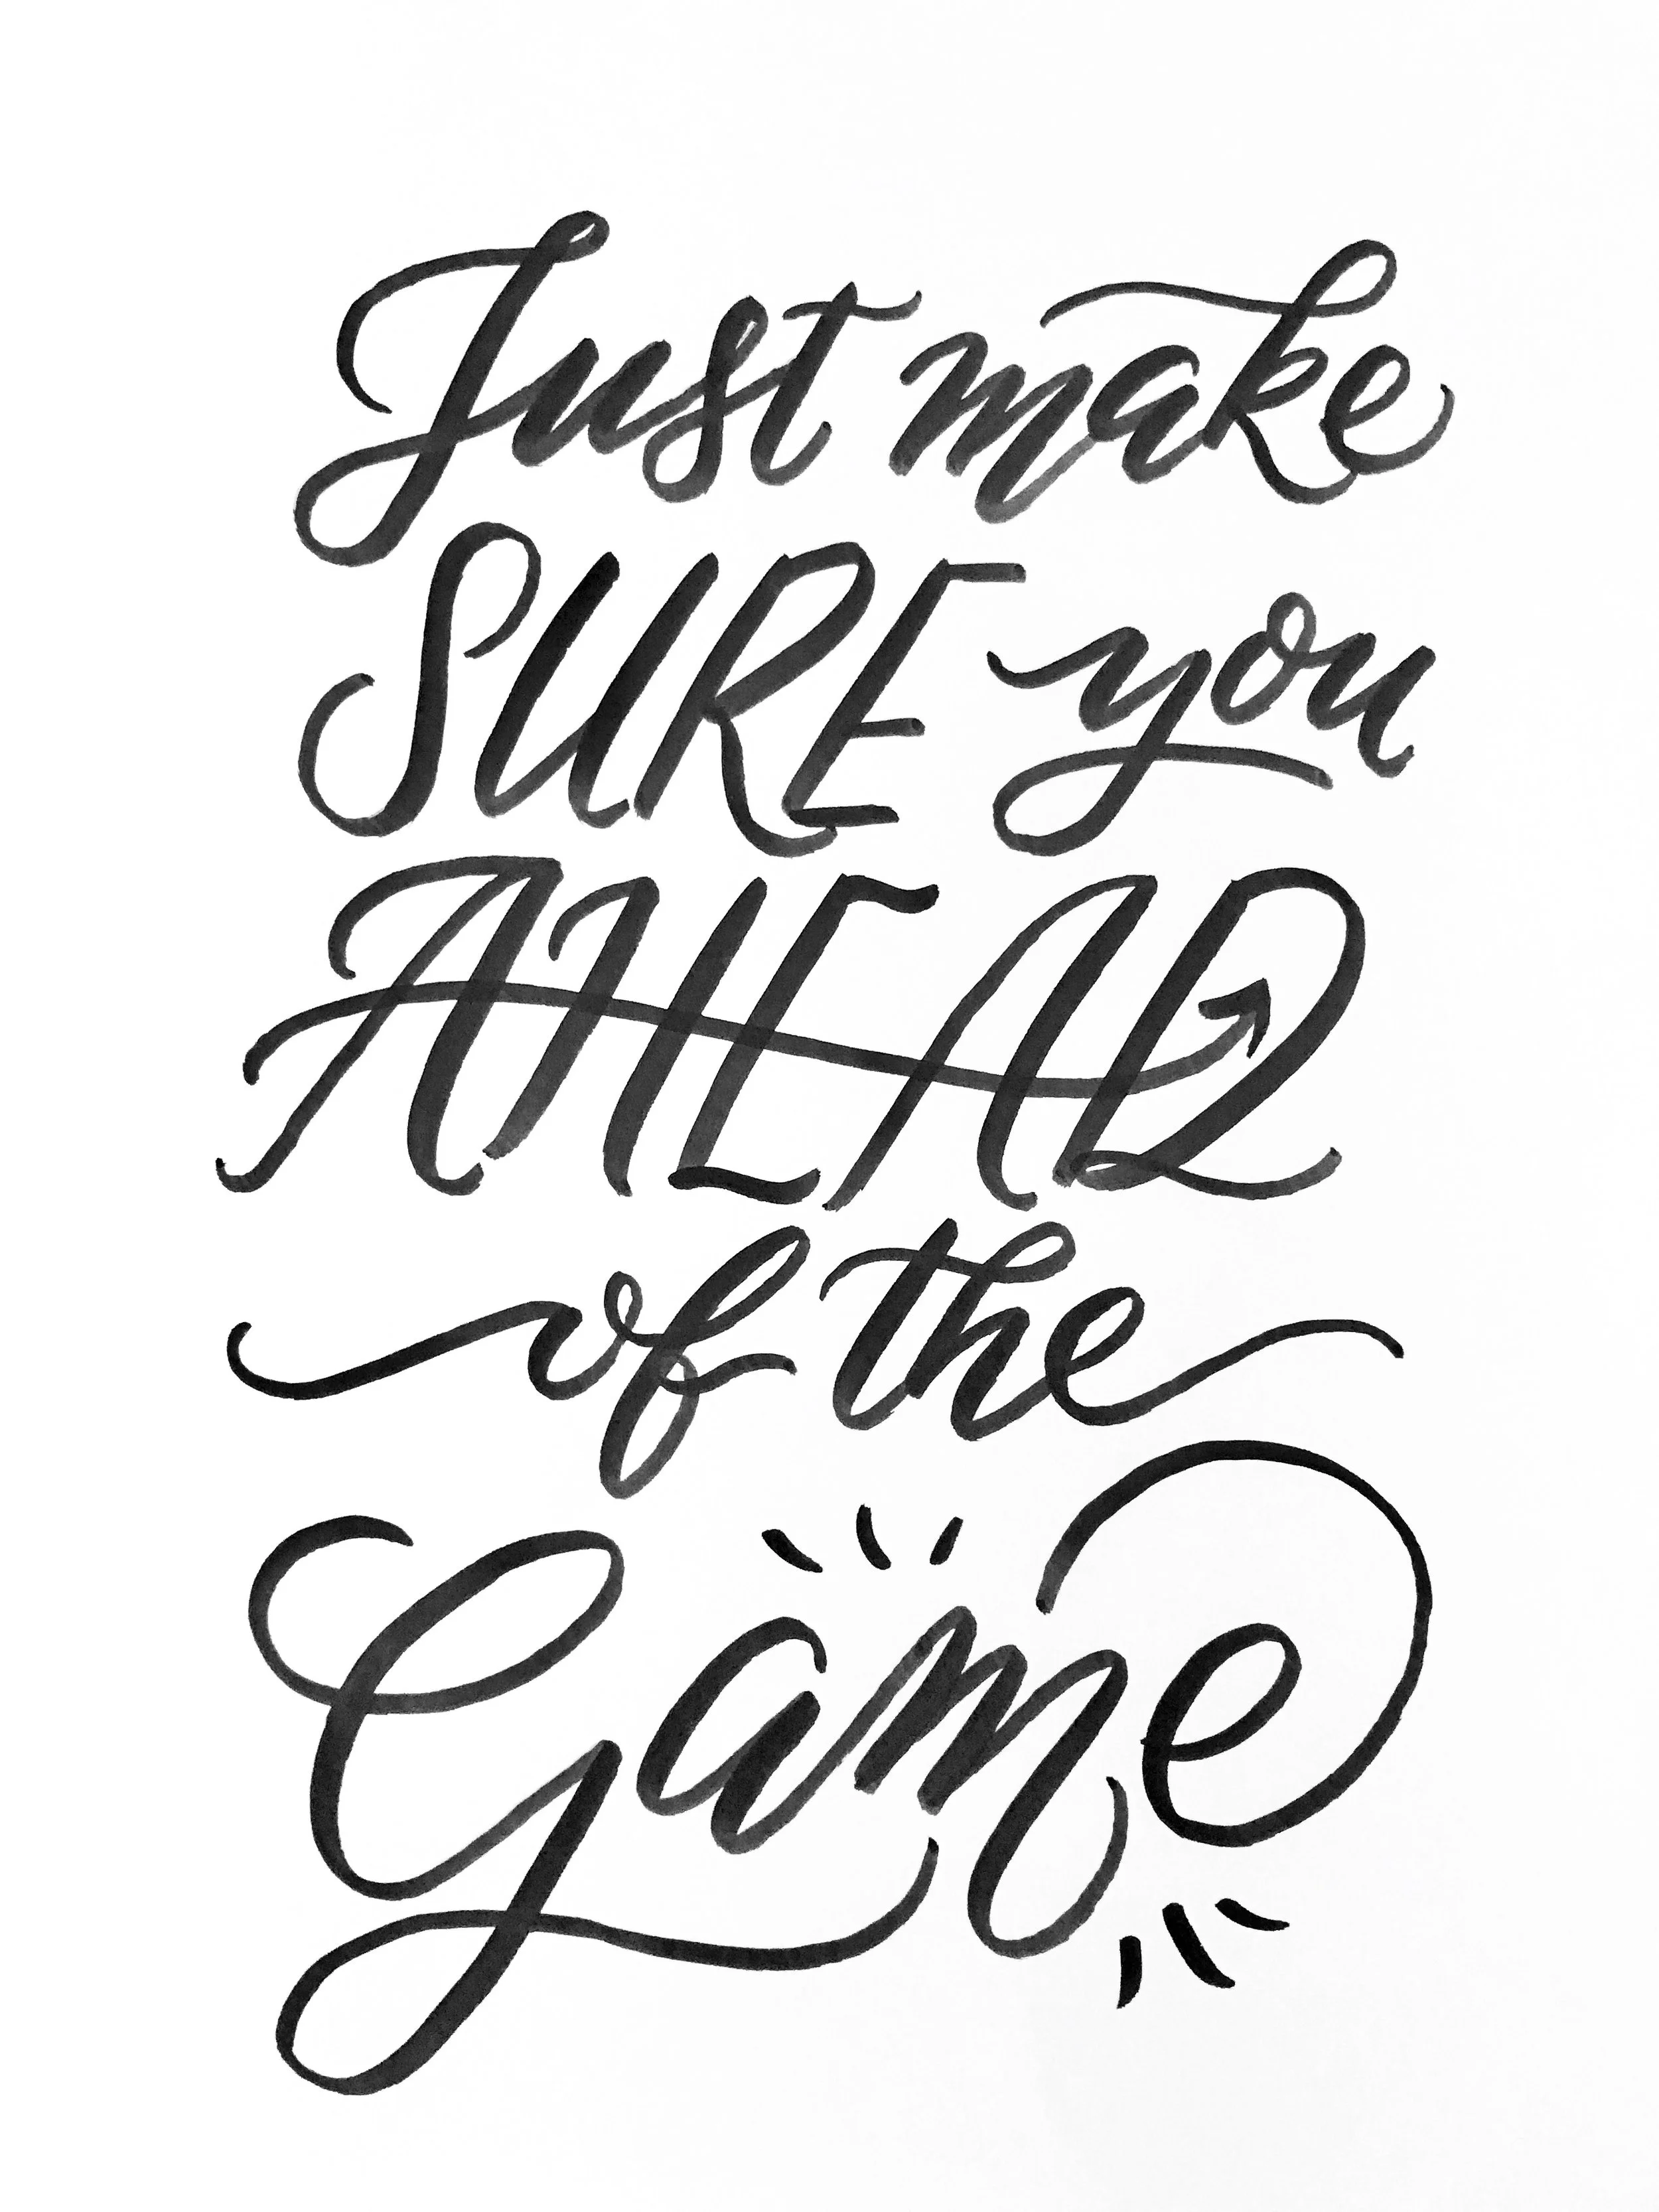 Just make
SURE you
AHEAD
of the
Game